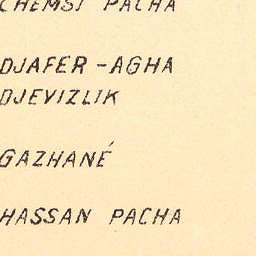 CHEMSI PACHA
DJAFER-AGHA
DJEVIZLIK
GAZHANÉ
HASSAN PACHA